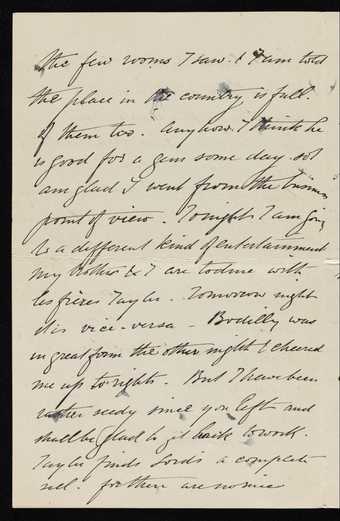 the few rooms I saw. & I am told
the place in the country is full
of them too. Anyhow. I think he
is good for a gem some day. so I
am glad I went from the business
point of view. Tonight I am going
to a different kind of entertainment
my brother & I are to dine with
les frères Taylor. Tomorrow night
it is vice-versa. Bodilly was
in great form the other night & cheered
me up to rights. But I have been
rather seedy since you left and
shall be glad to get back to work.
Taylor finds Lords a complete
sell. for there are no nice